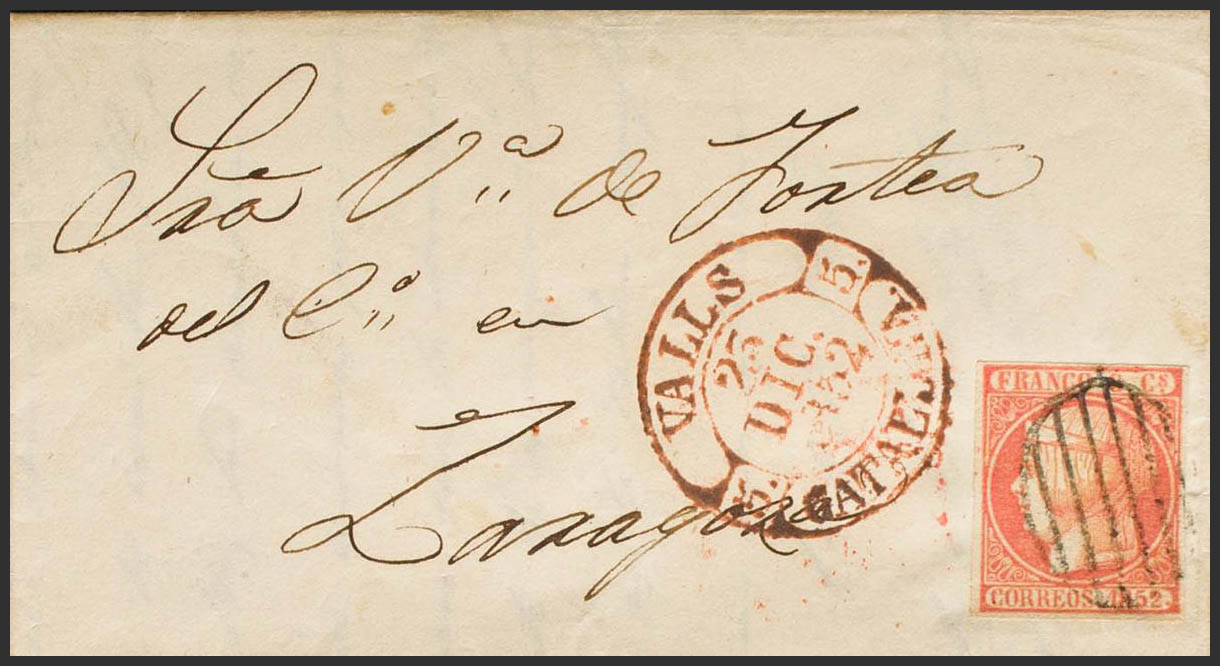 Sra V.ª de Fortea
del C.º en
Zaragoza
VALLS
5.
25
DIC
1852
CATALUÑA
5.
FRANCO Cs
CORREOS 1852.